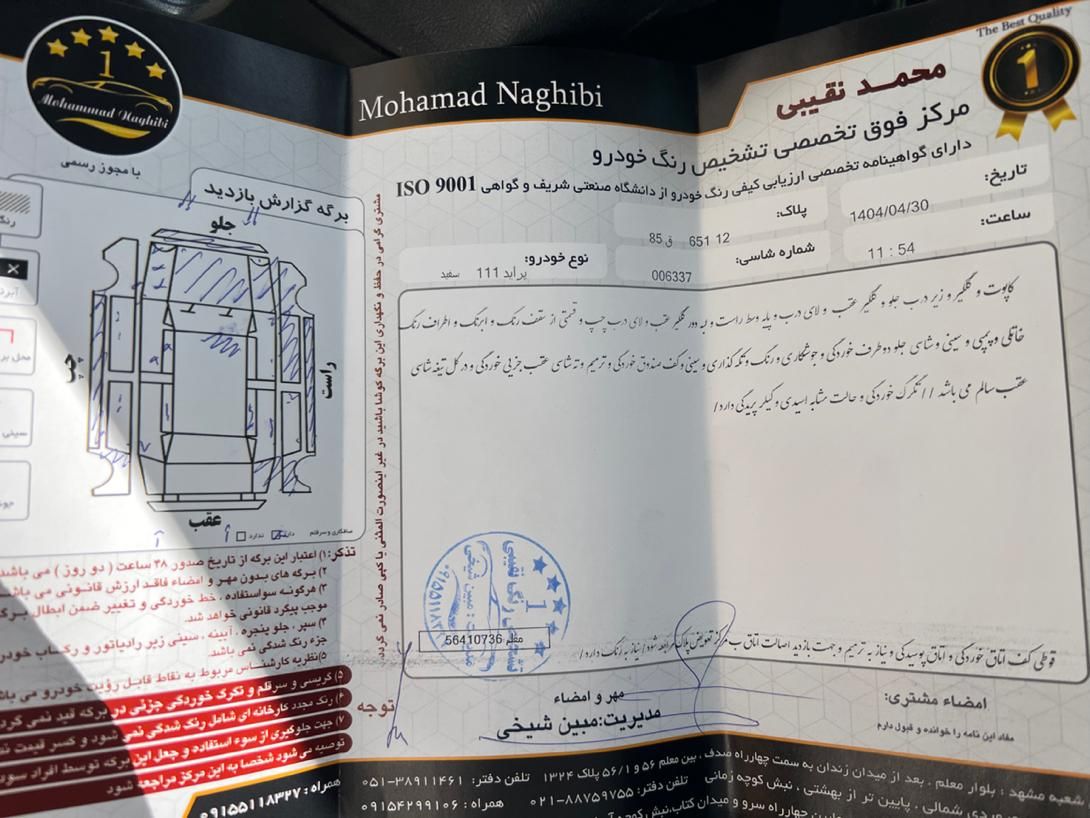 The Best Quality
1
Mohammad Naghibi
با مجوز رسمی
Mohamad Naghibi
محمد نقیبی
مرکز فوق تخصصی تشخیص رنگ خودرو
دارای گواهینامه تخصصی ارزیابی کیفی رنگ خودرو از دانشگاه صنعتی شریف و گواهی ISO 9001
تاریخ: 1404/04/30
پلاک: 12 651 ق 85
ساعت: 11 : 54
شماره شاسی: 006337
نوع خودرو: پراید 111 سفید
کاپوت و گلگیر و زیر درب جلو و گلگیر عقب و لای درب و پایه وسط راست و به دور گلگیر عقب و لای درب چپ و قسمتی از سقف رنگ و ابرنگ و اطراف رنگ
خانگی و پمپی و سینی و شاسی جلو دو طرف خوردگی و جوشکاری و رنگ و تکه گذاری و سینی و کف صندوق خوردگی و ترمیم و ته شاسی عقب جزیی خوردگی و در کل تیغه شاسی
عقب سالم می باشد // تگرگ خوردگی و حالت مشابه اسیدی و کیلر پریدگی دارد/
قوطی کف اتاق خوردگی و اتاق پوسیدگی و نیاز به ترمیم و جهت بازدید اصالت اتاق به مرکز تعویض پلاک مراجعه شود/ نیاز به رنگ دارد/
معلم 56410736
مهر و امضاء
مدیریت: مبین شیخی
امضاء مشتری:
مفاد این نامه را خوانده و قبول دارم
برگه گزارش بازدید
جلو
راست
چپ
عقب
صافکاری و سرقلم دارد ندارد
مشتری گرامی در حفظ و نگهداری این برگه کوشا باشید در غیر اینصورت المثنی یا کپی صادر نمی گردد
تذکر: ۱) اعتبار این برگه از تاریخ صدور ۴۸ ساعت ( دو روز ) می باشد
۲) برگه های بدون مهر و امضاء فاقد ارزش قانونی می باشد
۳) هرگونه سواستفاده ، خط خوردگی و تغییر ضمن ابطال برگه
موجب پیگرد قانونی خواهد شد.
۴) سپر ، جلو پنجره ، آیینه ، سینی زیر رادیاتور و رکاب خودرو
جزء رنگ شدگی نمی باشد.
۵) نظریه کارشناس مربوط به نقاط قابل رؤیت خودرو می باشد
توجه
۵) گریسی و سرقلم و تگرگ خوردگی جزئی در برگه قید نمی گردد
۶) رنگ مجدد کارخانه ای شامل رنگ شدگی نمی شود و کسر قیمت
۷) جهت جلوگیری از سوء استفاده و جعل این برگه توسط افراد سودجو
توصیه می شود شخصا به این مرکز مراجعه شود
همراه : ۰۹۱۵۵۱۱۸۳۲۷
شعبه مشهد : بلوار معلم ، بعد از میدان زندان به سمت چهارراه صدف ، بین معلم ۵۶ و ۵۶/۱ پلاک ۱۳۲۴ تلفن دفتر: ۳۸۹۱۱۴۶۱-۰۵۱
شمالی ، پایین تر از بهشتی ، نبش کوچه زمانی تلفن دفتر: ۸۸۷۵۹۷۵۵-۰۲۱ همراه : ۰۹۱۵۴۲۹۹۱۰۶
چهارراه سرو و میدان کتاب